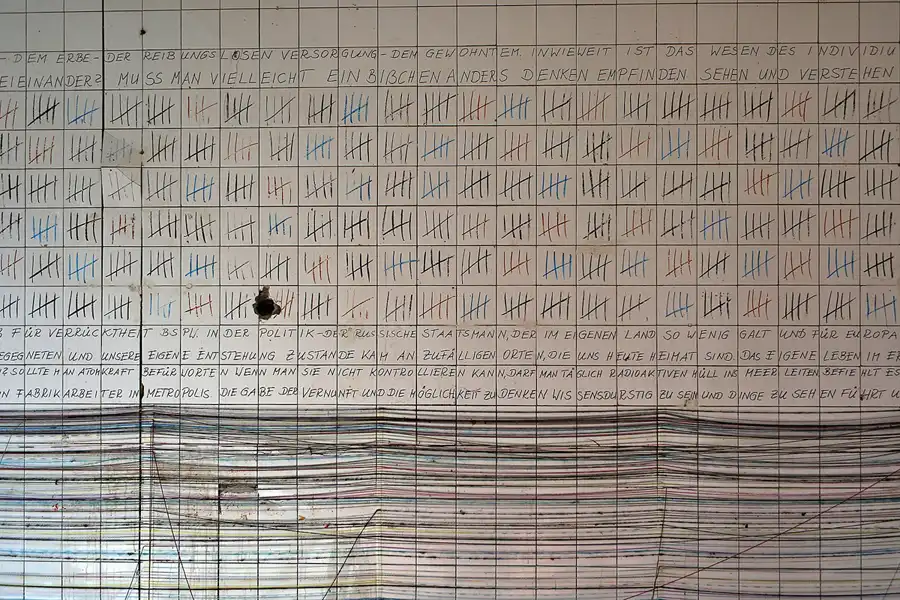 - DEM ERBE- DER REIBUNGSLOSEN VERSORGUNG - DEM GEWOHNTEM. INWIEWEIT IST DAS WESEN DES INDIVIDIU
EIEINANDER? MUSS MAN VIELLEICHT EIN BIßCHEN ANDERS DENKEN EMPFINDEN SEHEN UND VERSTEHEN
FÜR VERRÜCKTHEIT BSPW. IN DER POLITIK - DER RUSSISCHE STAATSMANN, DER IM EIGENEN LAND SO WENIG GALT UND FÜR EUROPA
EGEGNETEN UND UNSERE EIGENE ENTSTEHUNG ZUSTANDE KAM AN ZUFÄLLIGEN ORTEN, DIE UNS HEUTE HEIMAT SIND. DAS EIGENE LEBEN IM ER
SOLLTE MAN ATOMKRAFT BEFÜRWORTEN WENN MAN SIE NICHT KONTROLLIEREN KANN, DARF MAN TÄGLICH RADIOAKTIVEN MÜLL INS MEER LEITEN BEFIEHLT ES
N FABRIKARBEITER IN METROPOLIS. DIE GABE DER VERNUNFT UND DIE MÖGLICHKEIT ZU DENKEN WISSENSDURSTIG ZU SEIN UND DINGE ZU SEHEN FÜHRT U